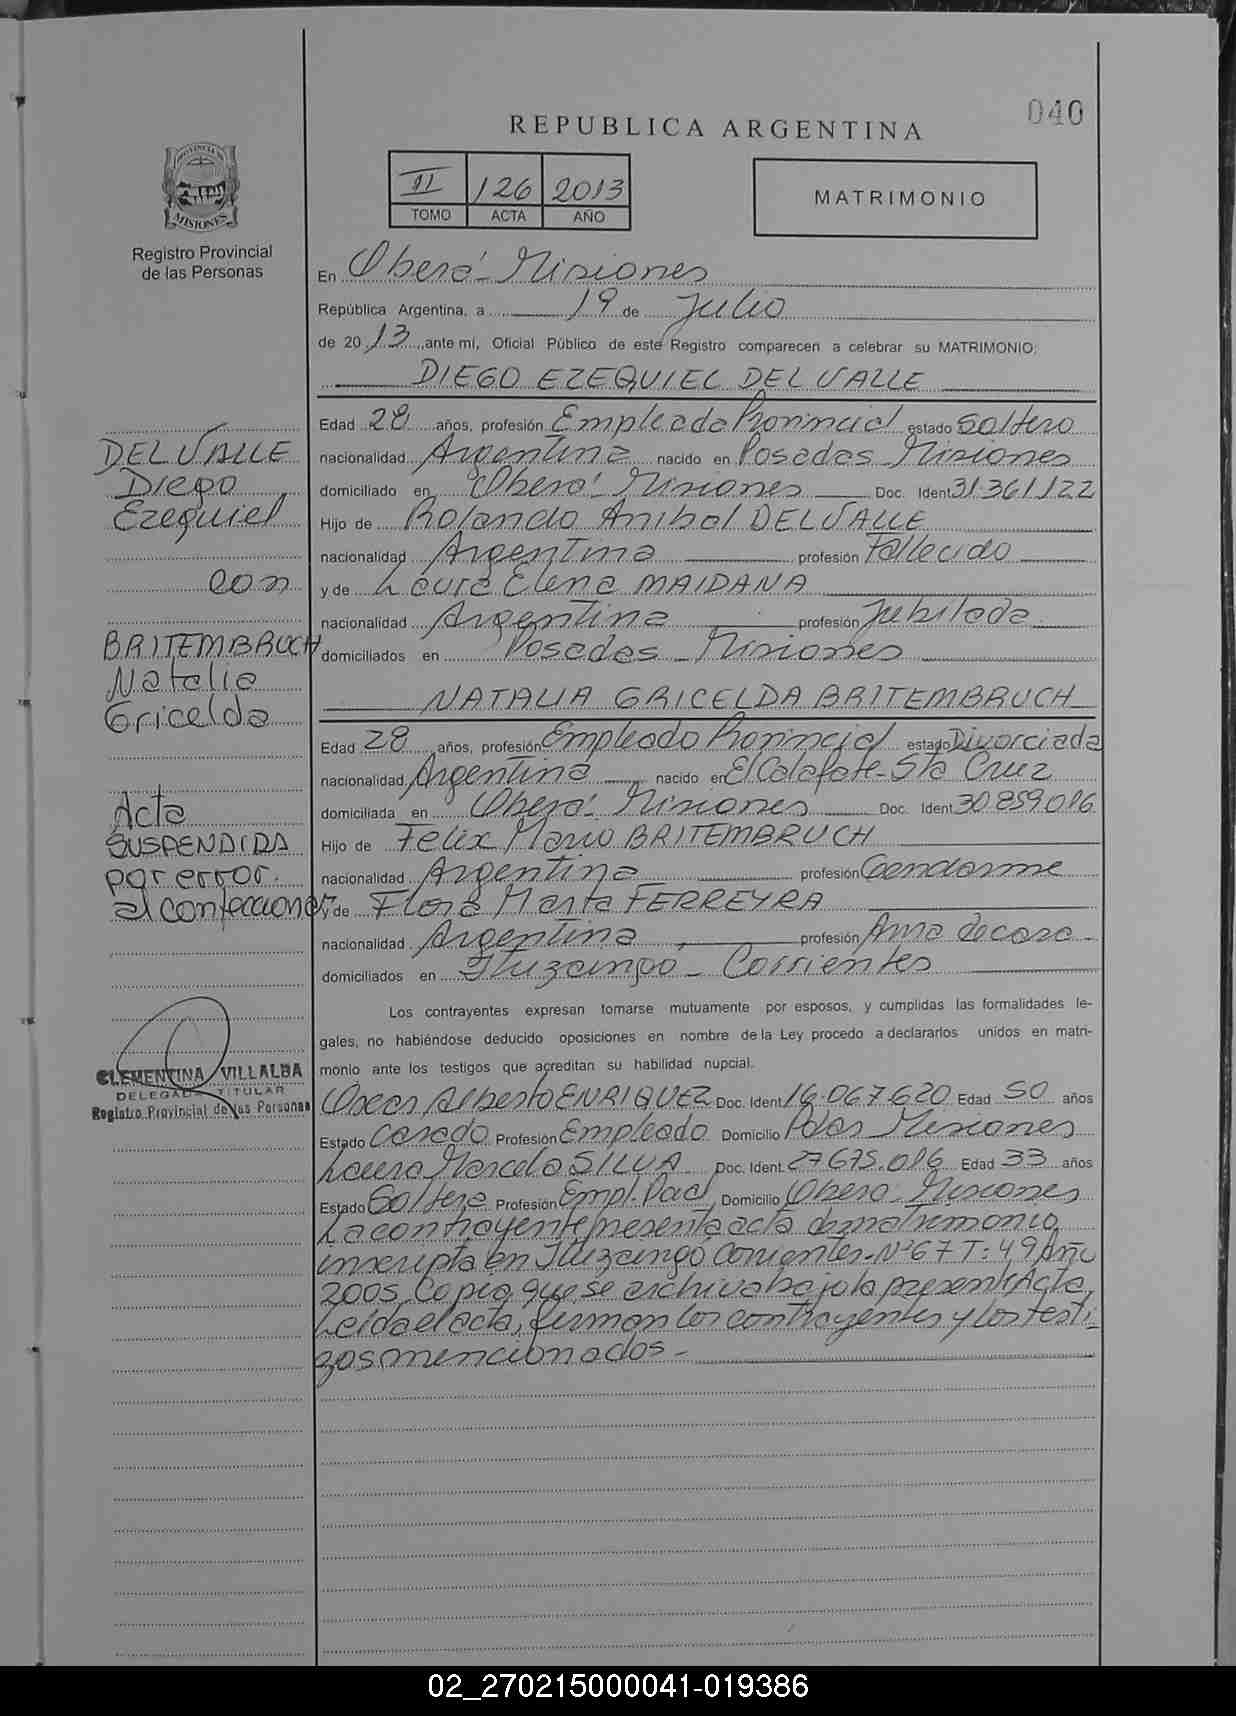 040
REPUBLICA ARGENTINA
II 126 2013
TOMO ACTA AÑO
MATRIMONIO
PROVINCIA DE
MISIONES
Registro Provincial
de las Personas
En Oberá - Misiones
República Argentina, a 19 de Julio
de 20 13, ante mí, Oficial Público de este Registro comparecen a celebrar su MATRIMONIO:
DIEGO EZEQUIEL DEL VALLE
Edad 28 años, profesión Empleado Provincial estado Soltero
nacionalidad Argentina nacido en Posadas Misiones
domiciliado en Oberá - Misiones Doc. Ident 31.361.122
Hijo de Rolando Anibal DEL VALLE
nacionalidad Argentina profesión Fallecido
y de Laura Elena MAIDANA
nacionalidad Argentina profesión Jubilada
domiciliados en Posadas - Misiones
NATALIA GRICELDA BRITEMBRUCH
Edad 28 años, profesión Empleado Provincial estado Divorciada
nacionalidad Argentina nacido en El Calafate - Sta Cruz
domiciliada en Oberá - Misiones Doc. Ident 30.859.016
Hijo de Felix Mario BRITEMBRUCH
nacionalidad Argentina profesión Gendarme
y de Flora Marta FERREYRA
nacionalidad Argentina profesión Ama de casa -
domiciliados en Ituzaingó - Corrientes
Los contrayentes expresan tomarse mutuamente por esposos, y cumplidas las formalidades le-
gales, no habiéndose deducido oposiciones en nombre de la Ley procedo a declararlos unidos en matri-
monio ante los testigos que acreditan su habilidad nupcial.
Oscar Alberto ENRIQUEZ Doc. Ident 16.067.620 Edad 50 años
Estado Casado Profesión Empleado Domicilio Pdas Misiones
Laura Marcela SILVA Doc. Ident 27675.016 Edad 33 años
Estado Soltera Profesión Empl. Domicilio Oberá - Misiones
La contrayente presenta acta de matrimonio
inscripta en Ituzaingó Corrientes - Nº 67 T: 49 Año
2005 Copia que se archiva bajo la presente Acta
Leida el acta, firman los contrayentes y los testi-
gos mencionados -
DEL VALLE
Diego
Ezequiel
con
BRITEMBRUCH
Natalia
Gricelda
Acta
SUSPENDIDA
por error
al confeccionar
CLEMENTINA VILLALBA
DELEGADA TITULAR
Registro Provincial de las Personas
02_270215000041-019386